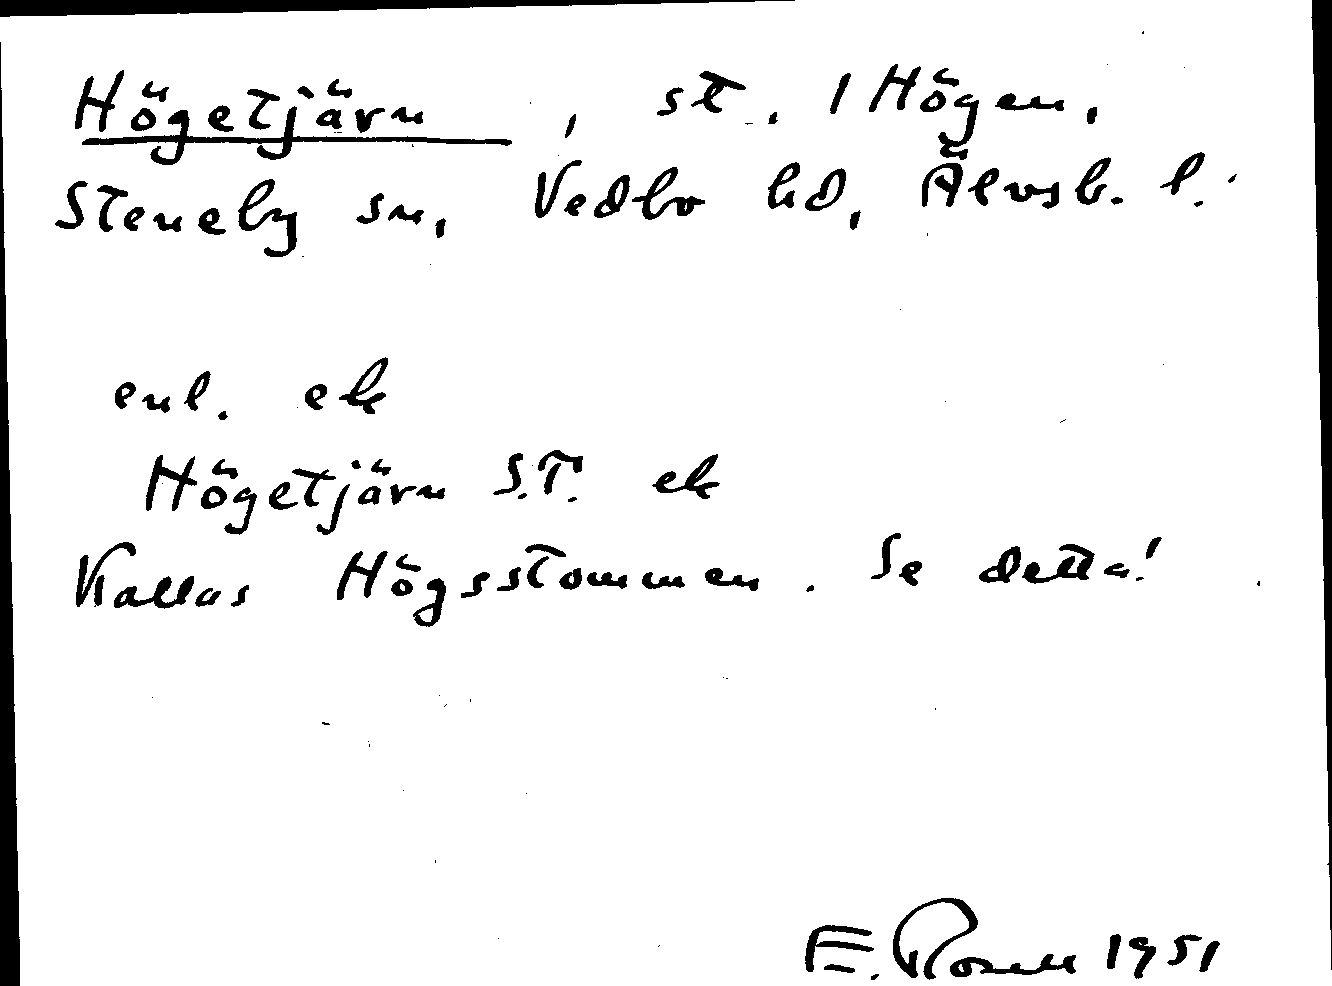 Högetjärn, st. 1 Högen,
Steneby sn, Vedbo hd, Älvsb. l.
enl. ek
Högetjärn S.T. ek
Kallas Högsstommen. Se detta!
E. Rosell 1951